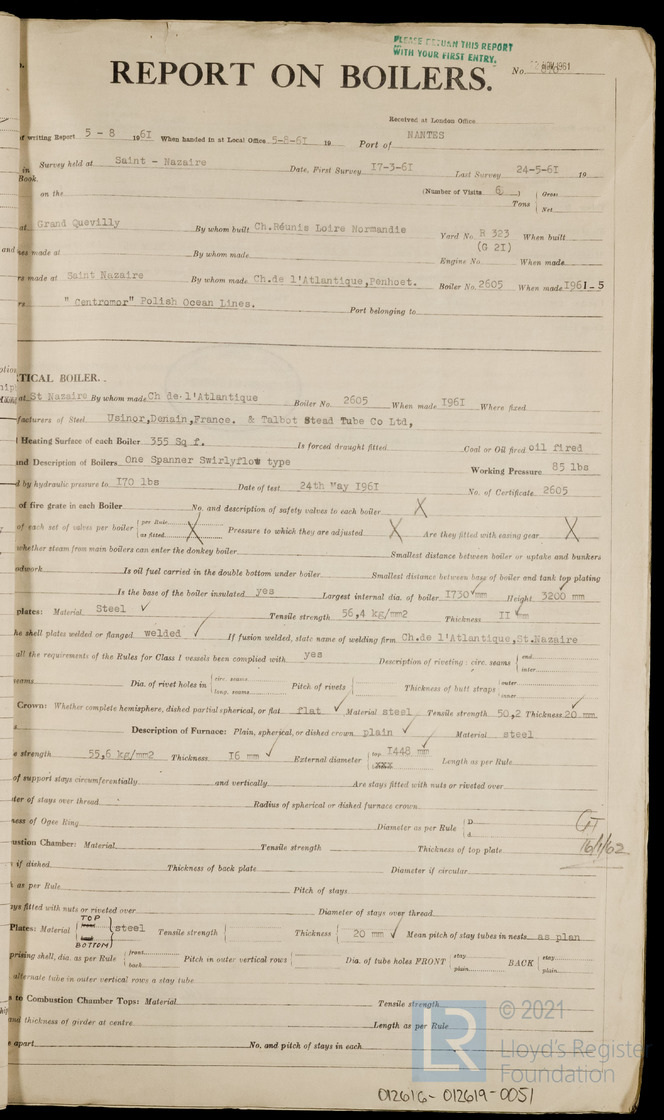 PLEASE RETURN THIS REPORT
WITH YOUR FIRST ENTRY.
REPORT ON BOILERS.
No.
Received at London Office
of writing Report 5 - 8 1961 When handed in at Local Office 5-8-61 19 Port of NANTES
in Survey held at Saint - Nazaire Date, First Survey 17-3-61 Last Survey 24-5-61 19
Book.
on the (Number of Visits 6 ) Tons Gross
Net
at Grand Quevilly By whom built Ch.Réunis Loire Normandie Yard No. R 323 When built
(G 21)
and nes made at By whom made Engine No. When made
rs made at Saint Nazaire By whom made Ch.de l'Atlantique,Penhoet. Boiler No. 2605 When made 1961-5
rs " Centromor" Polish Ocean Lines. Port belonging to
TICAL BOILER.
at St Nazaire By whom made Ch de l'Atlantique Boiler No. 2605 When made 1961 Where fixed
facturers of Steel Usinor,Denain,France. & Talbot Stead Tube Co Ltd,
l Heating Surface of each Boiler 355 Sq f. Is forced draught fitted Coal or Oil fired oil fired
and Description of Boilers One Spanner Swirlyflow type Working Pressure 85 lbs
d by hydraulic pressure to 170 lbs Date of test 24th May 1961 No. of Certificate 2605
of fire grate in each Boiler No. and description of safety valves to each boiler X
of each set of valves per boiler per Rule as fitted X Pressure to which they are adjusted X Are they fitted with easing gear X
whether steam from main boilers can enter the donkey boiler Smallest distance between boiler or uptake and bunkers
odwork Is oil fuel carried in the double bottom under boiler Smallest distance between base of boiler and tank top plating
Is the base of the boiler insulated yes Largest internal dia. of boiler 1730 mm Height 3200 mm
plates: Material Steel ✓ Tensile strength 56,4 kg/mm2 Thickness 11 mm
he shell plates welded or flanged welded ✓ If fusion welded, state name of welding firm Ch.de l'Atlantique,St.Nazaire
all the requirements of the Rules for Class I vessels been complied with yes Description of riveting: circ. seams end
inter.
seams Dia. of rivet holes in circ. seams long. seams Pitch of rivets Thickness of butt straps outer
inner
Crown: Whether complete hemisphere, dished partial spherical, or flat flat ✓ Material steel Tensile strength 50,2 Thickness 20 mm.
s Description of Furnace: Plain, spherical, or dished crown plain ✓ Material steel
e strength 55,6 kg/mm2 Thickness 16 mm ✓ External diameter top 1448 mm Length as per Rule
XXX
of support stays circumferentially and vertically Are stays fitted with nuts or riveted over
ter of stays over thread Radius of spherical or dished furnace crown
ness of Ogee Ring Diameter as per Rule D
d
16/1/62
ustion Chamber: Material Tensile strength Thickness of top plate
if dished Thickness of back plate Diameter if circular
h as per Rule Pitch of stays
ays fitted with nuts or riveted over Diameter of stays over thread
Plates: Material TOP BOTTOM steel Tensile strength Thickness 20 mm ✓ Mean pitch of stay tubes in nests as plan
prising shell, dia. as per Rule front back Pitch in outer vertical rows Dia. of tube holes FRONT stay plain BACK stay plain
alternate tube in outer vertical rows a stay tube
s to Combustion Chamber Tops: Material Tensile strength
and thickness of girder at centre Length as per Rule
e apart No. and pitch of stays in each
LR
© 2021
Lloyd's Register
Foundation
012616 - 012619-0051